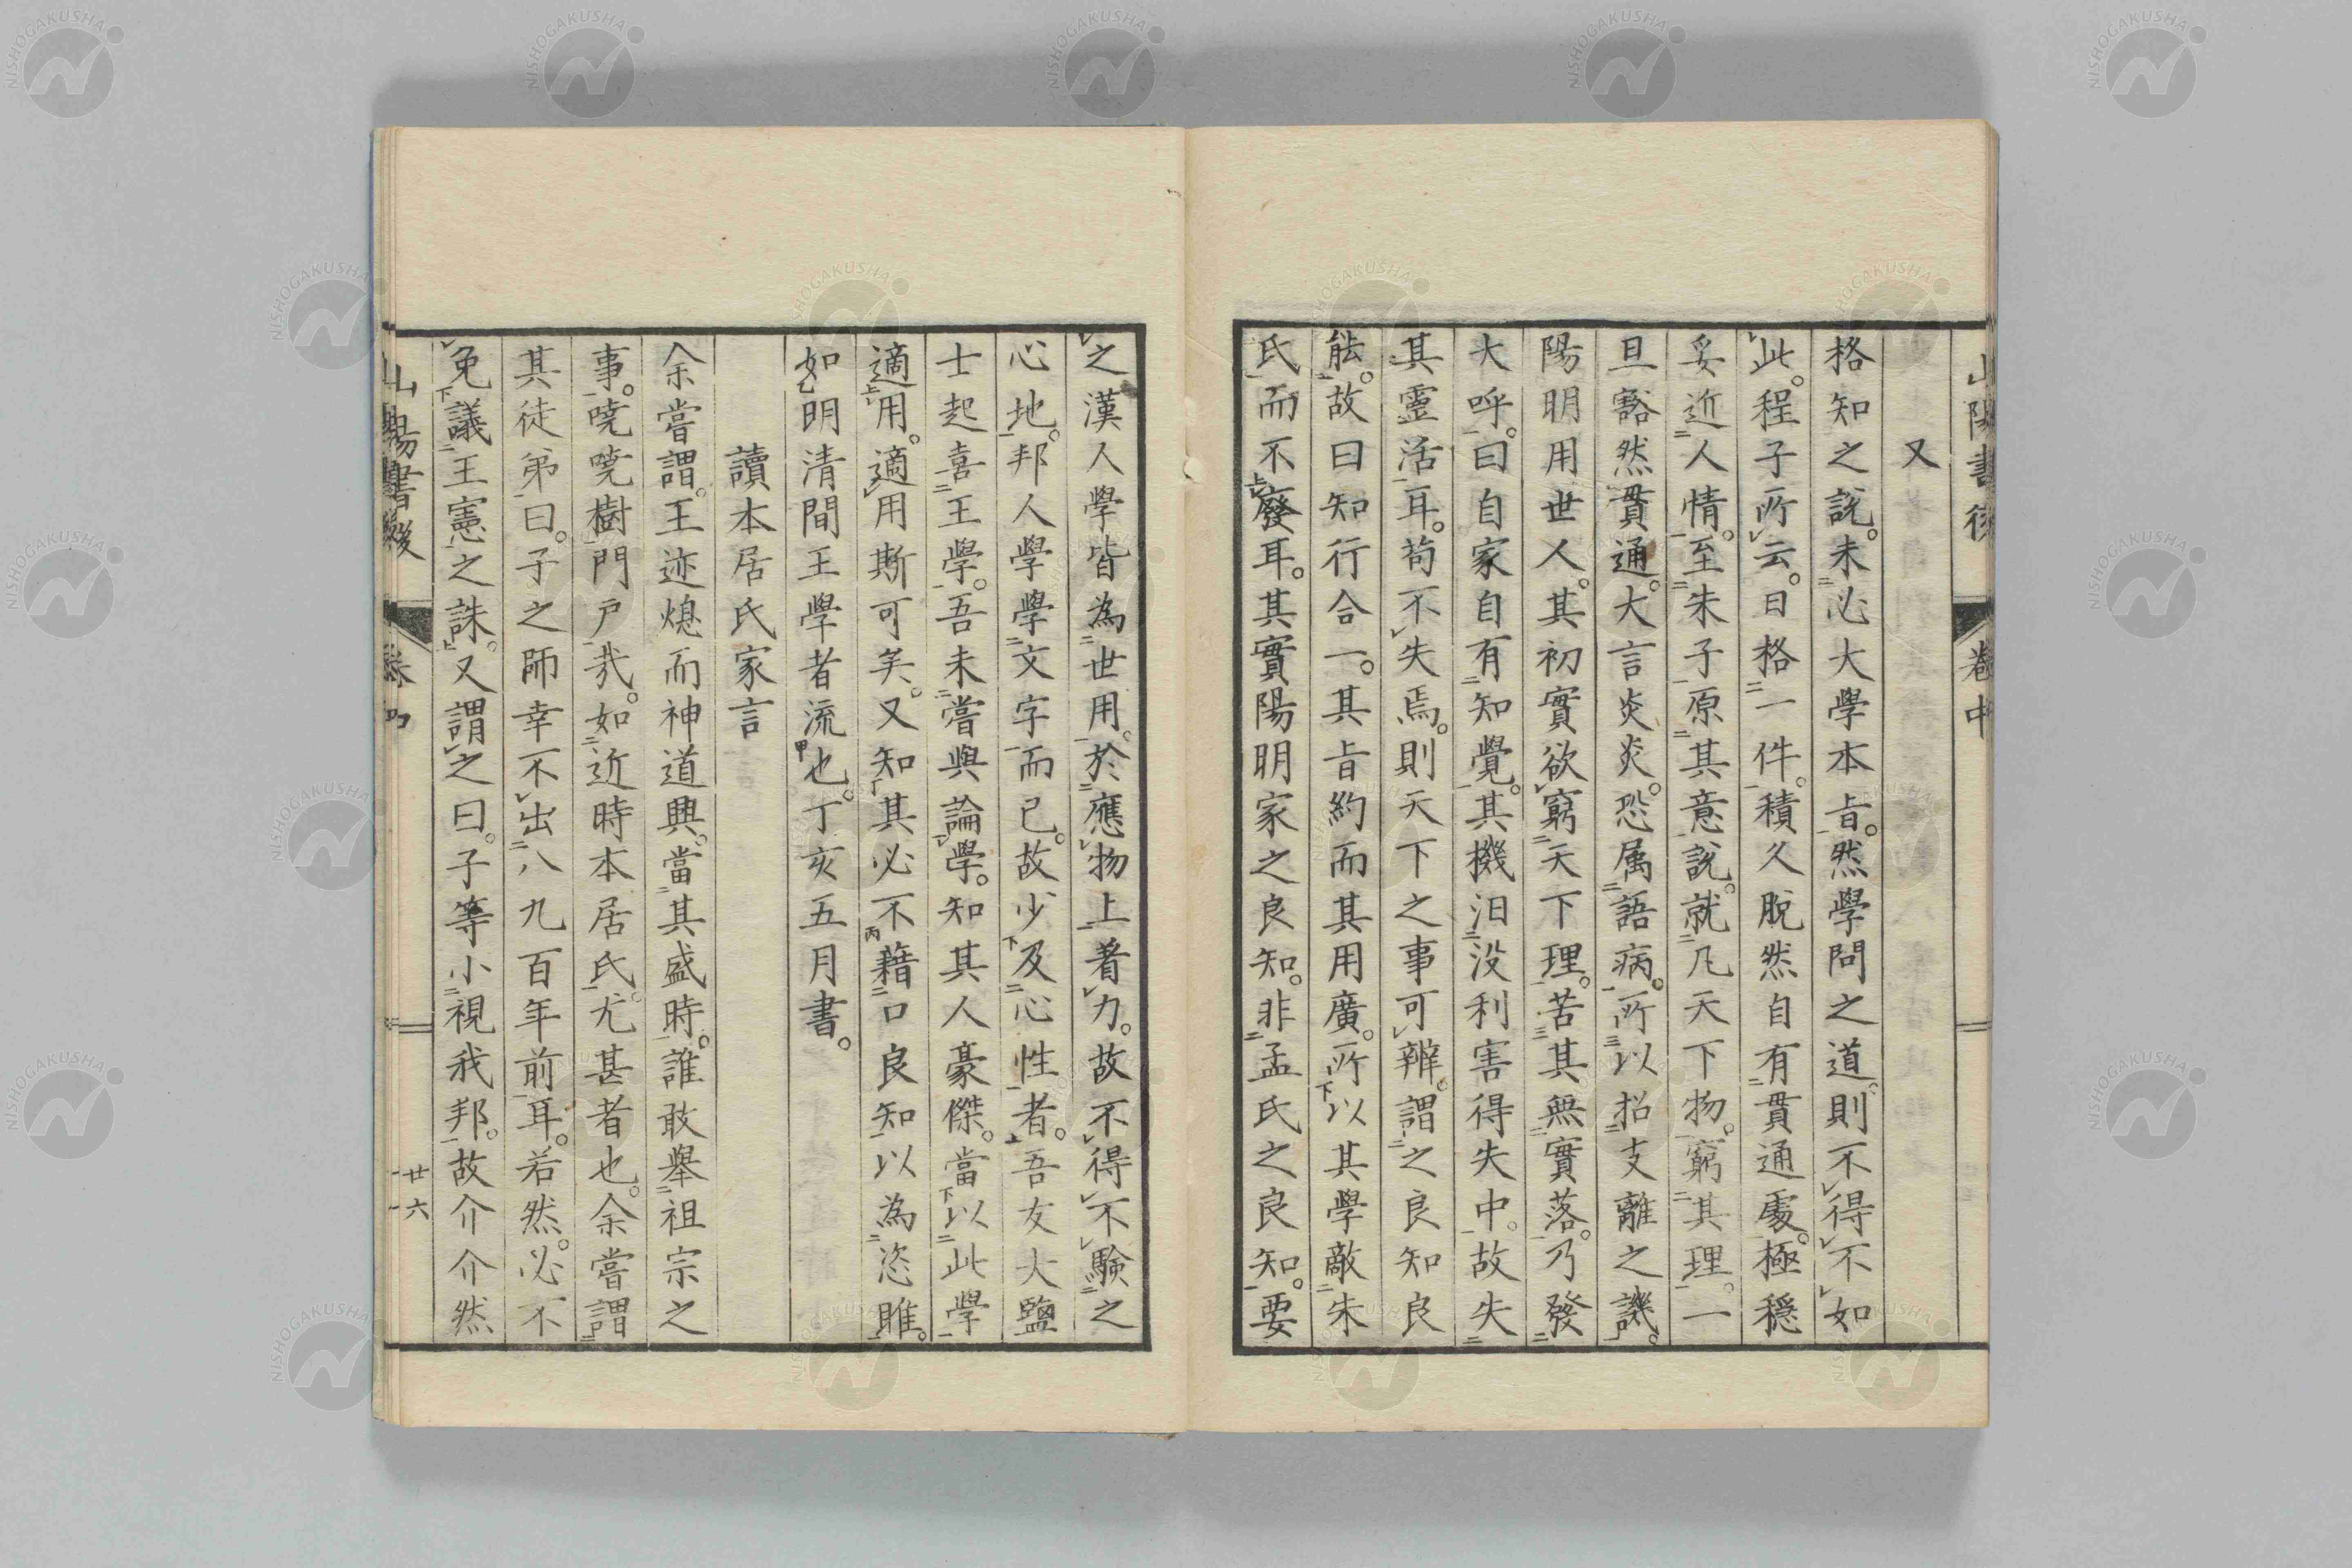 山陽書後
卷中
又
格知之說。未必大學本旨。然學問之道。則不得不如
此。程子所云。日格一件。積久脫然自有貫通處。極穩
妥近人情。至朱子原其意說。就凡天下物。窮其理。一
旦豁然貫通。大言炎炎。恐属語病。所以招支離之譏。
陽明用世人。其初實欲窮天下理。苦其無實落。乃發
大呼。曰自家自有知覺。其機汩没利害得失中。故失
其靈活耳。苟不失焉。則天下之事可辨。謂之良知良
能。故曰知行合一。其旨約而其用廣。所以其學敵朱
氏而不廢耳。其實陽明家之良知。非孟氏之良知。要
之漢人學皆為世用。於應物上着力。故不得不驗之
心地。邦人學學文字而已。故少及心性者。吾友大鹽
士起喜王學。吾未嘗與論學。知其人豪傑。當以此學
適用。適用斯可矣。又知其必不藉口良知以為恣睢。
如明清間王學者流也。丁亥五月書。
讀本居氏家言
余嘗謂。王迹熄而神道興。當其盛時。誰敢舉祖宗之
事。嘵嘵樹門戸哉。如近時本居氏。尤甚者也。余嘗謂
其徒弟曰。子之師幸不出八九百年前耳。若然。必不
免議王憲之誅。又謂之曰。子等小視我邦。故介介然
山陽書後
卷中
廿六
NISHOGAKUSHA